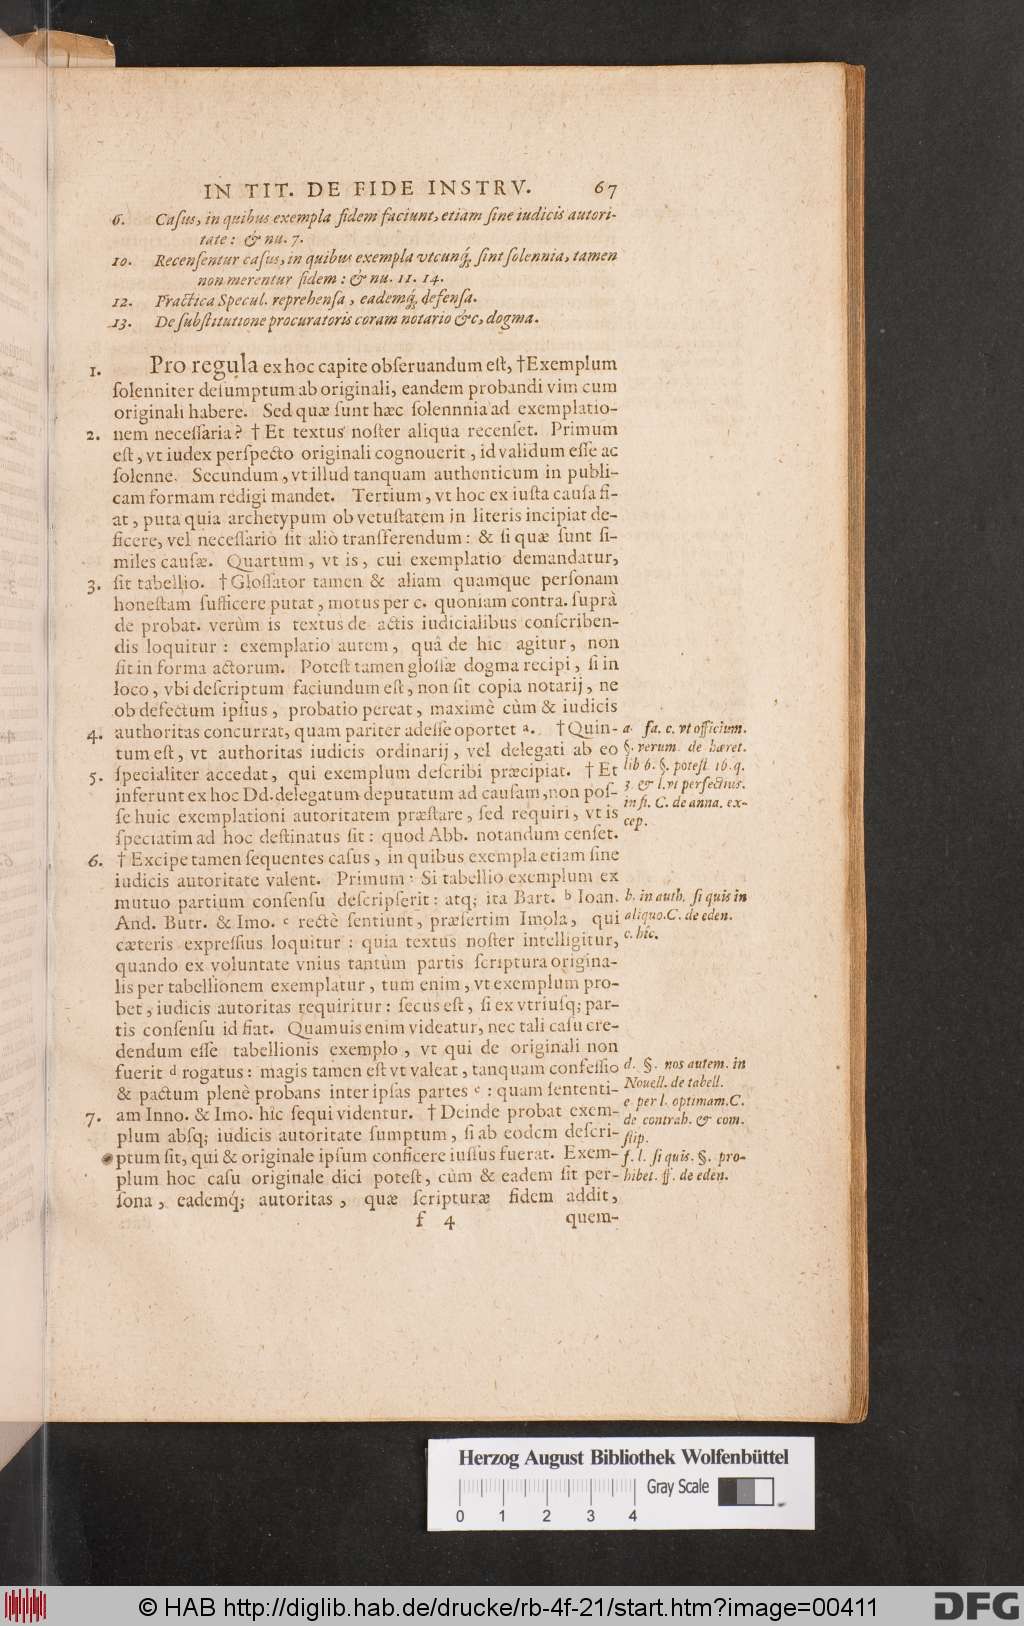 IN TIT. DE FIDE INSTRV. 67
6. Caſus, in quibus exempla fidem faciunt, etiam ſine iudicis autori-
tate: & nu. 7.
10. Recenſentur caſus, in quibus exempla vtcunq́; ſint ſolennia, tamen
non merentur fidem: & nu. 11. 14.
12. Practica Specul. reprehenſa, eademq́; defenſa.
13. De ſubſtitutione procuratoris coram notario &c, dogma.
1. Pro regula ex hoc capite obſeruandum eſt, †Exemplum
ſolenniter deſumptum ab originali, eandem probandi vim cum
originali habere. Sed quæ ſunt hæc ſolennnia ad exemplatio-
2. nem neceſſaria? † Et textus noſter aliqua recenſet. Primum
eſt, vt iudex perſpecto originali cognouerit, id validum eſſe ac
ſolenne. Secundum, vt illud tanquam authenticum in publi-
cam formam redigi mandet. Tertium, vt hoc ex iuſta cauſa fi-
at, puta quia archetypum ob vetuſtatem in literis incipiat de-
ficere, vel neceſſariò ſit aliò transferendum: & ſi quæ ſunt ſi-
miles cauſæ. Quartum, vt is, cui exemplatio demandatur,
3. ſit tabellio. † Gloſſator tamen & aliam quamque perſonam
honeſtam ſufficere putat, motus per c. quoniam contra. ſuprà
de probat. verùm is textus de actis iudicialibus conſcriben-
dis loquitur: exemplatio autem, quâ de hic agitur, non
fit in forma actorum. Poteſt tamen gloſſæ dogma recipi, ſi in
loco, vbi deſcriptum faciundum eſt, non ſit copia notarij, ne
ob defectum ipſius, probatio pereat, maximè cùm & iudicis
4. authoritas concurrat, quam pariter adeſſe oportet a. † Quin-
tum eſt, vt authoritas iudicis ordinarij, vel delegati ab eo
5. ſpecialiter accedat, qui exemplum deſcribi præcipiat. † Et
inferunt ex hoc Dd. delegatum deputatum ad cauſam, non poſ-
ſe huic exemplationi autoritatem præſtare, ſed requiri, vt is
ſpeciatim ad hoc deſtinatus ſit: quod Abb. notandum cenſet.
6. † Excipe tamen ſequentes caſus, in quibus exempla etiam ſine
iudicis autoritate valent. Primum: Si tabellio exemplum ex
mutuo partium conſenſu deſcripſerit: atq; ita Bart. b Ioan.
And. Butr. & Imo. c rectè ſentiunt, præſertim Imola, qui
cæteris expreſſius loquitur: quia textus noſter intelligitur,
quando ex voluntate vnius tantùm partis ſcriptura origina-
lis per tabellionem exemplatur, tum enim, vt exemplum pro-
bet, iudicis autoritas requiritur: ſecus eſt, ſi ex vtriuſq; par-
tis conſenſu id fiat. Quamuis enim videatur, nec tali caſu cre-
dendum eſſe tabellionis exemplo, vt qui de originali non
fuerit d rogatus: magis tamen eſt vt valeat, tanquam confeſſio
& pactum plenè probans inter ipſas partes e: quam ſententi-
7. am Inno. & Imo. hic ſequi videntur. † Deinde probat exem-
plum abſq; iudicis autoritate ſumptum, ſi ab eodem deſcri-
ptum ſit, qui & originale ipſum conficere iuſſus fuerat. Exem-
plum hoc caſu originale dici poteſt, cùm & eadem ſit per-
ſona, eademq́; autoritas, quæ ſcripturæ fidem addit,
f 4 quem-
a. fa. c. vt officium.
§. verum. de hæret.
lib 6. §. poteſt. 16. q.
3. & l. vt perfectius.
in fi. C. de anna. ex-
cep.
b. in auth. ſi quis in
aliquo. C. de eden.
c. hic.
d. §. nos autem. in
Nouell. de tabell.
e per l. optimam. C.
de contrah. & com.
ſtip.
f. l. ſi quis. §. pro-
hibet. ff. de eden.
Herzog August Bibliothek Wolfenbüttel
Gray Scale
0 1 2 3 4
© HAB http://diglib.hab.de/drucke/rb-4f-21/start.htm?image=00411
DFG